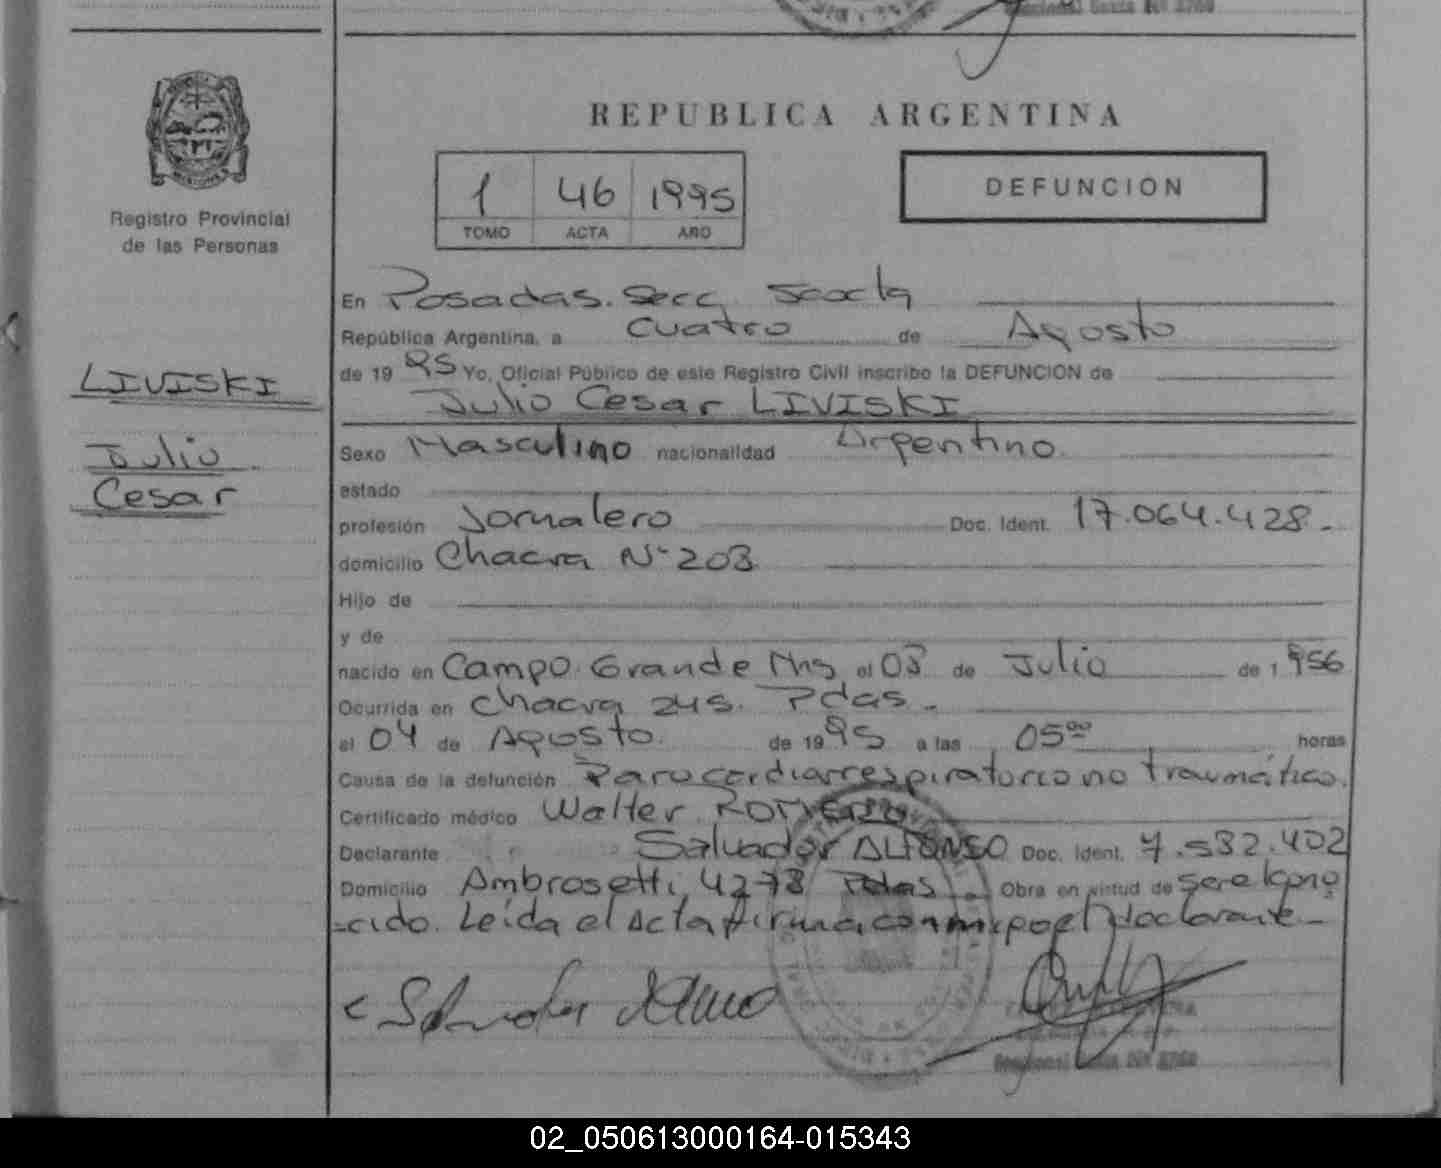 REPUBLICA ARGENTINA
1 46 1995
TOMO ACTA AÑO
DEFUNCION
Registro Provincial
de las Personas
LIVISKI
Julio
Cesar
En Posadas. Secc. Sexta
República Argentina, a cuatro de Agosto
de 1995 Yo, Oficial Público de este Registro Civil inscribo la DEFUNCION de
Julio Cesar LIVISKI
Sexo Masculino nacionalidad Argentino.
estado
profesión Jornalero Doc. Ident. 17.064.428.-
domicilio Chacra Nº 203
Hijo de
y de
nacido en Campo Grande Mns el 03 de Julio de 1956
Ocurrida en Chacra 245. Pdas.
el 04 de Agosto. de 1995 a las 05⁰⁰ horas
Causa de la defunción Paro cardiorrespiratorio no traumático.
Certificado médico Walter ROMERO
Declarante Salvador ALFONSO Doc. Ident. 7.532.402
Domicilio Ambrosetti 4278 Pdas. Obra en virtud de ser el cono
=cido. Leída el Acta firma conmigo el declarante.-
Regional Sexta Nº 2760
02_050613000164-015343